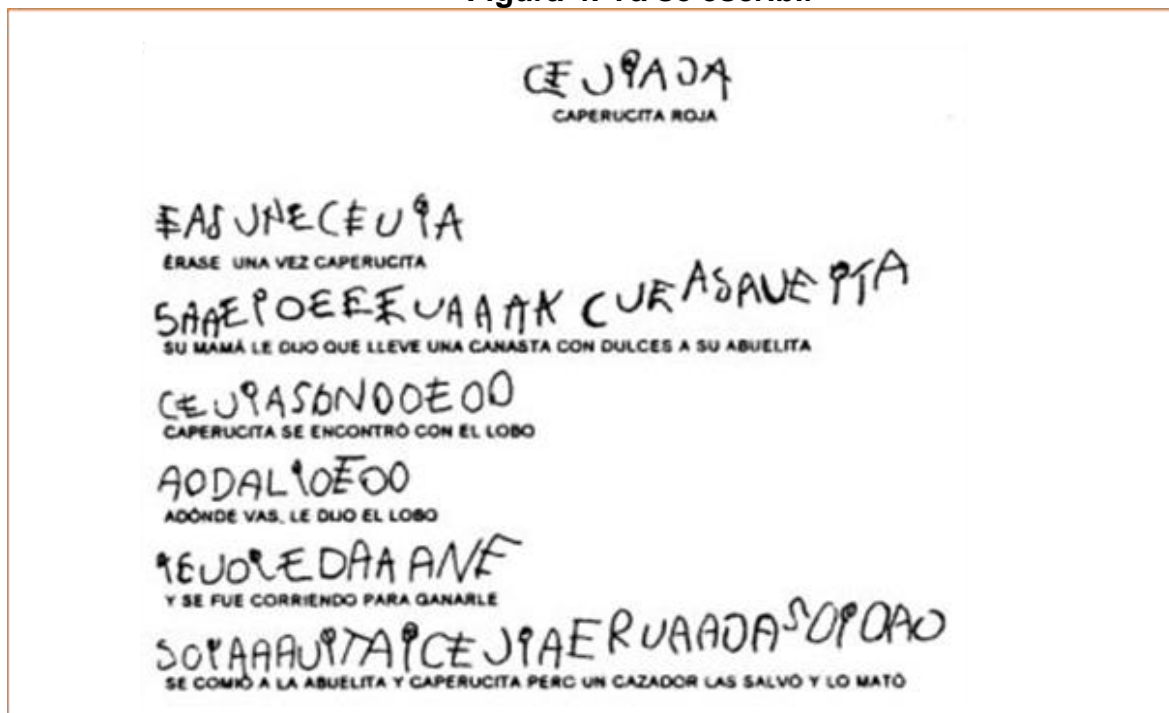 CEUIAJA
CAPERUCITA ROJA
EASUNECEUIA
ÉRASE UNA VEZ CAPERUCITA
SAAEIOEEEUAAAA CUEASAUEITA
SU MAMÁ LE DIJO QUE LLEVE UNA CANASTA CON DULCES A SU ABUELITA
CEUIASONOOEOO
CAPERUCITA SE ENCONTRÓ CON EL LOBO
AODALIOEOO
ADÓNDE VAS, LE DIJO EL LOBO
IEUOIEDAAANE
Y SE FUE CORRIENDO PARA GANARLE
SOIAAAUITAICEUIAERUAADASOIOAO
SE COMIÓ A LA ABUELITA Y CAPERUCITA PERO UN CAZADOR LAS SALVÓ Y LO MATÓ